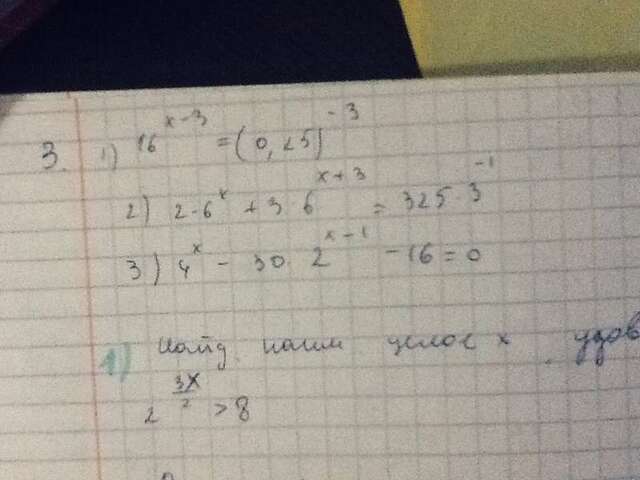 3. 1) 16^{x-3} = (0,25)^{-3}
2) 2·6^x + 3 6^{x+3} = 325·3^{-1}
3) 4^x - 30·2^{x-1} - 16 = 0
1) Найд. наим целое x, удов
2^{\frac{3x}{2}} > 8